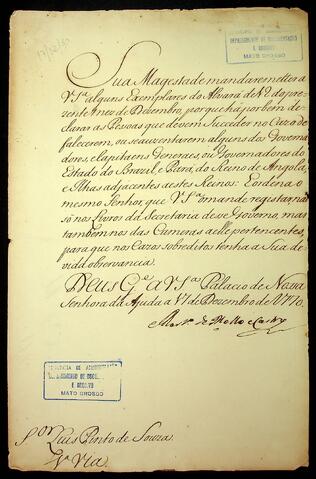 17/12/70
DEPARTAMENTO DE DOCUMENTAÇÃO
E ARQUIVO
MATO GROSSO
Sua Magestade manda remetter a
V.Sª. alguns Exemplares do Alvará de No do pre-
zente Anno de Dezembro, porque há por bem de-
clarar as Pessoas que devem Succeder no Cazo de
falecerem, ou se auzentarem alguns dos Governa-
dores, e Capitaens Generaes, ou Governadores do
Estado do Brazil, e Pará, do Reino de Angola,
e Ilhas adjacentes a estes Reinos: E ordena o
mesmo Senhor, que V.Sª. o mande registar, não
só nos Livros da Secretaria desse Governo, mas
tambem nos das Cameras a elle pertencentes,
para que nos Cazos sobreditos tenha a Sua de-
vida observancia.
Deus Gᵉ. a V.Sª. Palacio de Nossa
Senhora da Ajuda a 17 de Dezembro de 1770.
Martº. de Mello e Castro
E ARQUIVO
MATO GROSSO
Sor Luis Pinto de Souza.
1ª Via.